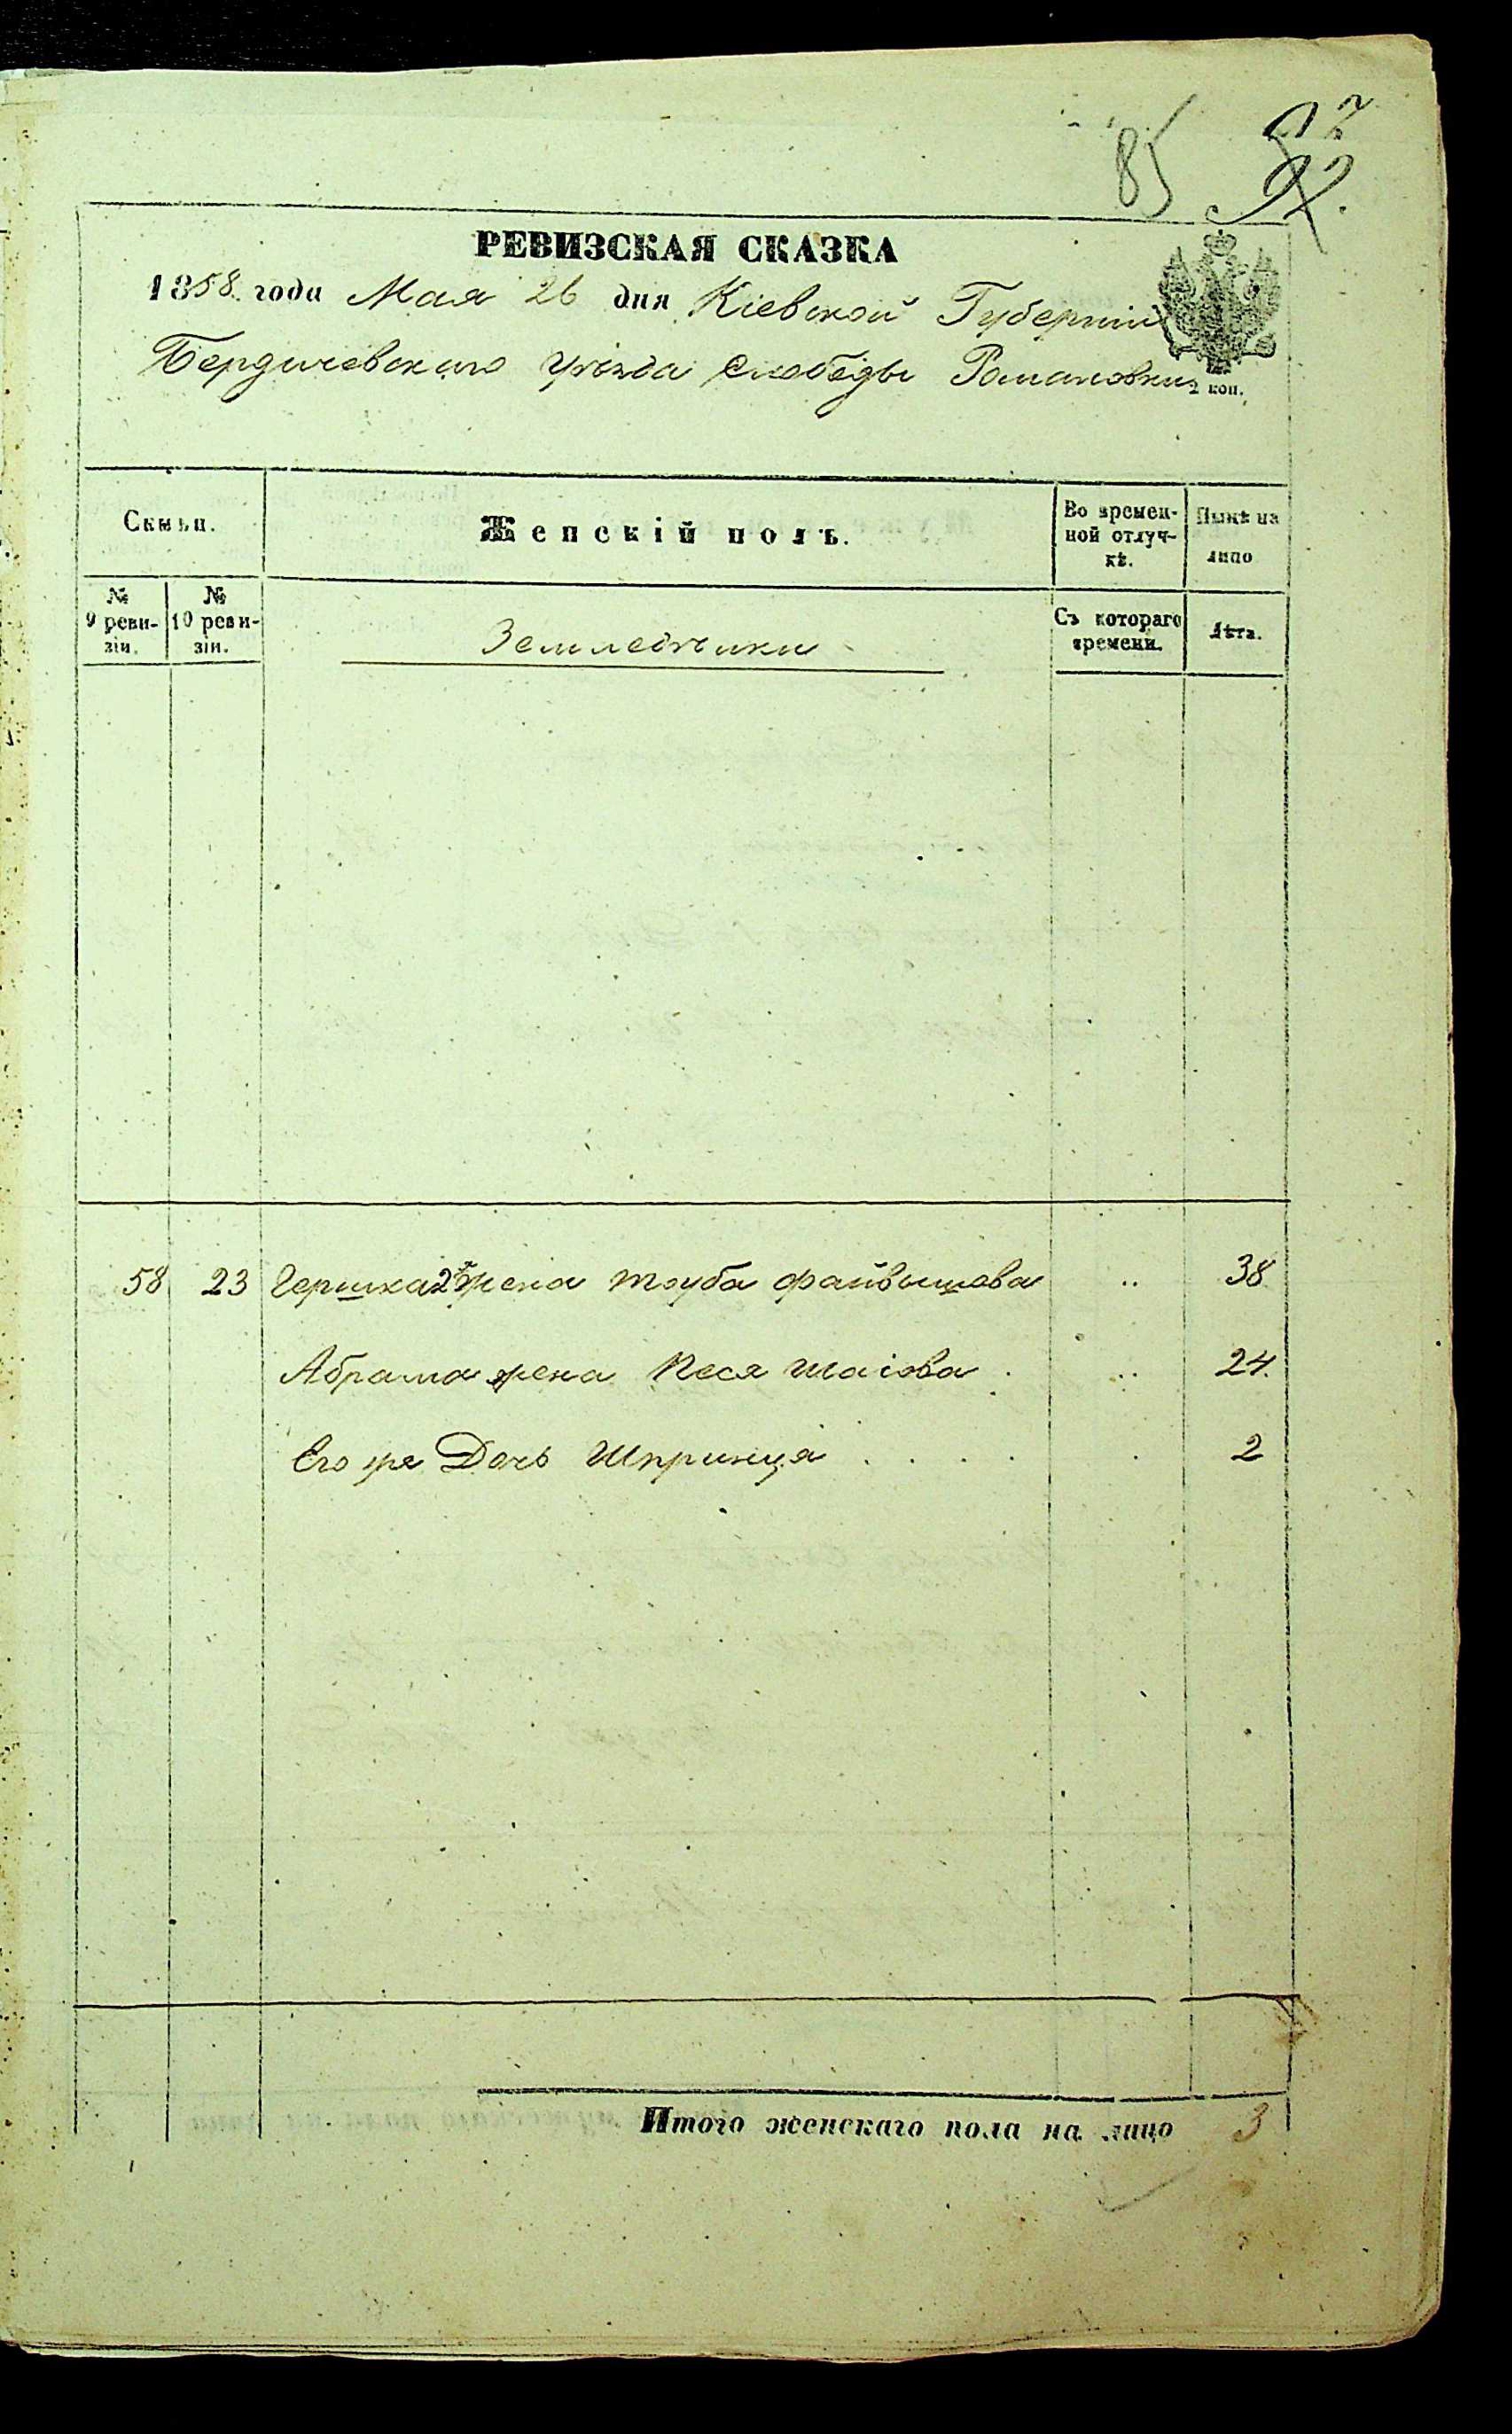 85 92.
РЕВИЗСКАЯ СКАЗКА
1858. года Мая 26 дня Кіевской Губерніи
Бердичевскаго Уѣзда Слободы Романовки
2 коп.
Семьи.
Женскій полъ.
Во времен-
ной отлуч-
кѣ.
Нынѣ на
лицо
№
9 реви-
зіи.
№
10 реви-
зіи.
Съ котораго
времени.
Лѣта.
58 23 Гершка 2я жена Тауба Файвышова 38
Абрама жена Песя Шаіова 24.
Его же Дочь Шпринця 2
Итого женскаго пола на лицо 3